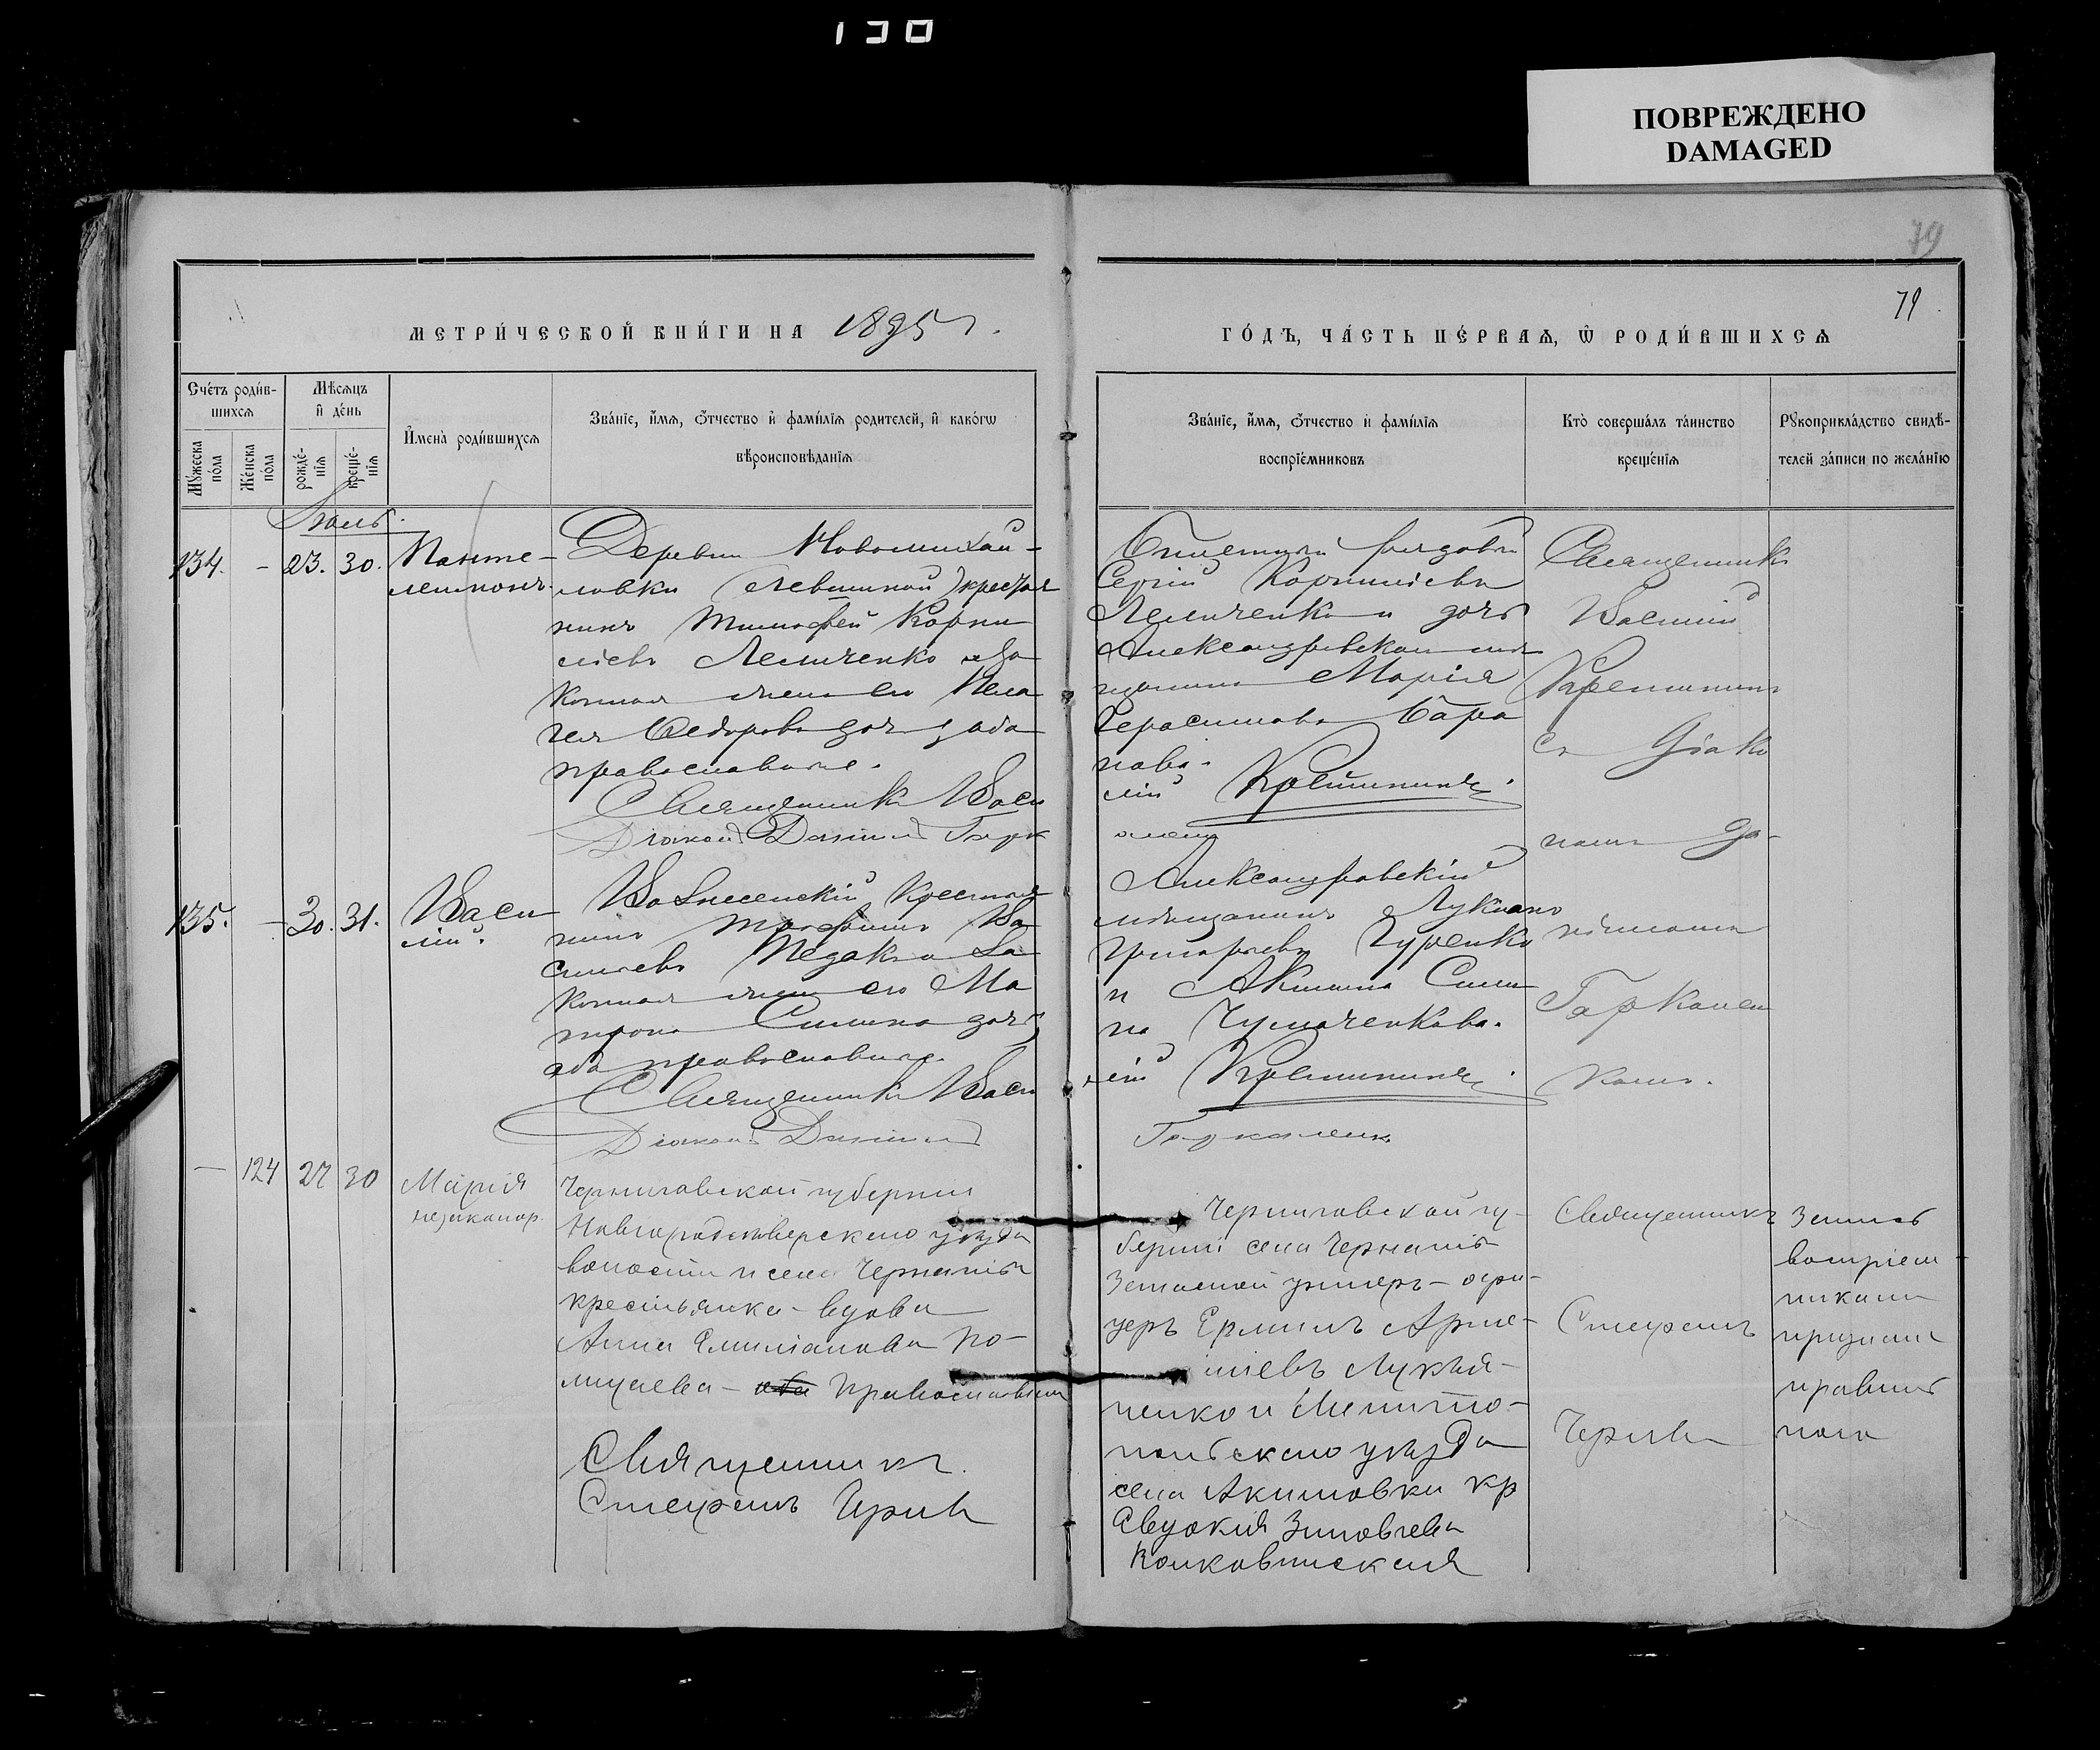 130
ПОВРЕЖДЕНО
DAMAGED
79
79
МЕТРИ́ЧЕСКОЙ КНИ́ГИ НА 1895 г.
ГО́ДЪ, ЧА́СТЬ ПЕ́РВАѦ, Ѡ҆ РОДИ́ВШИХСѦ
Сче́тъ роди́в-
шихсѧ
Мѣ́сѧцъ
и҆ де́нь
Мꙋ́жеска
по́ла
Же́нска
по́ла
рожде́-
нїѧ
креще́-
нїѧ
И҆мена̀ роди́вшихсѧ
Зва́нїе, и҆́мѧ, ѻ҆́тчество и҆ фами́лїѧ родителей, и҆ како́гѡ
вѣроисповѣ́данїѧ
Зва́нїе, и҆́мѧ, ѻ҆́тчество и҆ фами́лїѧ
воспрїе́мниковъ
Кто̀ соверша́лъ та́инство
креще́нїѧ
Рꙋкоприкла́дство свидѣ́-
телей за́писи по жела́нїю
Іюль.
134. - 23. 30.
Панте-
леимонъ.
Деревни Новомихай-
ловки (Левшиной) крестья
нинъ Тимофей Корни
ліевъ Лемченко и за
конная жена его Пела
гея Федорова доч, оба
православные.
Священникъ Васи
Діаконъ Даніилъ Гарк
рядовой
Сергій Корниліевъ
Лемченко и дочь
Александровскаго мѣ
щанина Марія
Герасимова Бара
нова.
лій Крещининъ.
аленко
Священникъ
Василій
Крещининъ
съ Діако
номъ Да-
ніиломъ
Гаркален
комъ.
135. - 30. 31.
Васи
лій.
Вознесенскій крестья
нинъ Трофимъ Ва
сильевъ и за
конная жена его Ма
трона Симина дочь,
оба православные.
Священникъ Васи
Діаконъ Даніилъ
Александровскій
мѣщанинъ Лукіанъ
Григорьевъ Гуренко
и Акилина Сими
на Чумаченкова.
лій Крещининъ.
Гаркаленко
— 124 27 30
Марія
незаконор.
Черниговской губерніи
Новгородсѣверскаго уѣзда
волости и села
крестьянка-вдова
Анна Емиліанова По-
лицаева - оба православныя
Священникъ
Стефанъ
Черниговской гу-
берніи села
Запасной унтеръ-офи-
церъ Ермилъ
Лукья-
ненко и Мелито-
польскаго уѣзда
села Акимовки кр
Евдокія Зиновіева
Волковинская
Священникъ
Стефанъ
Запись
воспріем
никами
правиль